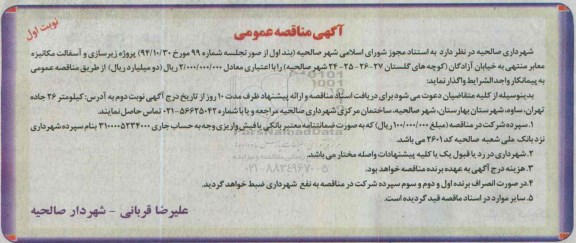 آگهی مناقصه عمومی
نوبت اول
شهرداری صالحیه در نظر دارد به استناد مجوز شورای اسلامی شهر صالحیه (بند اول از صورتجلسه شماره ۹۹ مورخ ۹۴/۱۰/۳۰) پروژه زیرسازی و آسفالت مکانیزه
معابر منتهی به خیابان آزادگان (کوچه های گلستان ۲۷-۲۶-۲۵-۲۴ شهر صالحیه) را با اعتباری معادل ۲/۰۰۰/۰۰۰/۰۰۰ ریال (دو میلیارد ریال) از طریق مناقصه عمومی
به پیمانکار واجد الشرایط واگذار نماید:
بدینوسیله از کلیه متقاضیان دعوت می شود برای دریافت اسناد مناقصه و ارائه پیشنهاد ظرف مدت ۱۰ روز از تاریخ درج آگهی نوبت دوم به آدرس: کیلومتر ۲۶ جاده
تهران، ساوه، شهرستان بهارستان، شهر صالحیه، ساختمان مرکزی شهرداری صالحیه مراجعه و یا با شماره ۵۶۶۳۵۰۴۲-۰۲۱ تماس حاصل نمایند.
۱. سپرده شرکت در مناقصه (مبلغ ۱۰۰/۰۰۰/۰۰۰ ریال) که به صورت ضمانتنامه معتبر بانکی یا فیش واریزی وجه به حساب جاری ۳۱۰۰۰۰۵۲۳۴۰۰۰ بنام سپرده شهرداری
نزد بانک ملی شعبه صالحیه کد ۲۶۰۱ می باشد.
۲. شهرداری در رد یا قبول یک یا کلیه پیشنهادات واصله مختار می باشد.
۳. هزینه درج آگهی به عهده برنده مناقصه خواهد بود.
۴. در صورت انصراف برنده اول و دوم و سوم سپرده شرکت در مناقصه به نفع شهرداری ضبط خواهد گردید.
۵. سایر موارد در اسناد مناقصه قید گردیده است.
علیرضا قربانی - شهردار صالحیه
۰۲۱-۸۸۳۴۹۶۷۰-۵